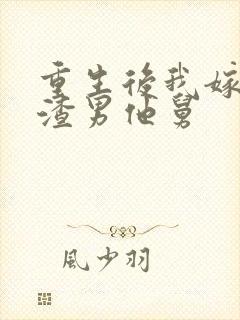 重生後我嫁
渣男他舅
風少羽